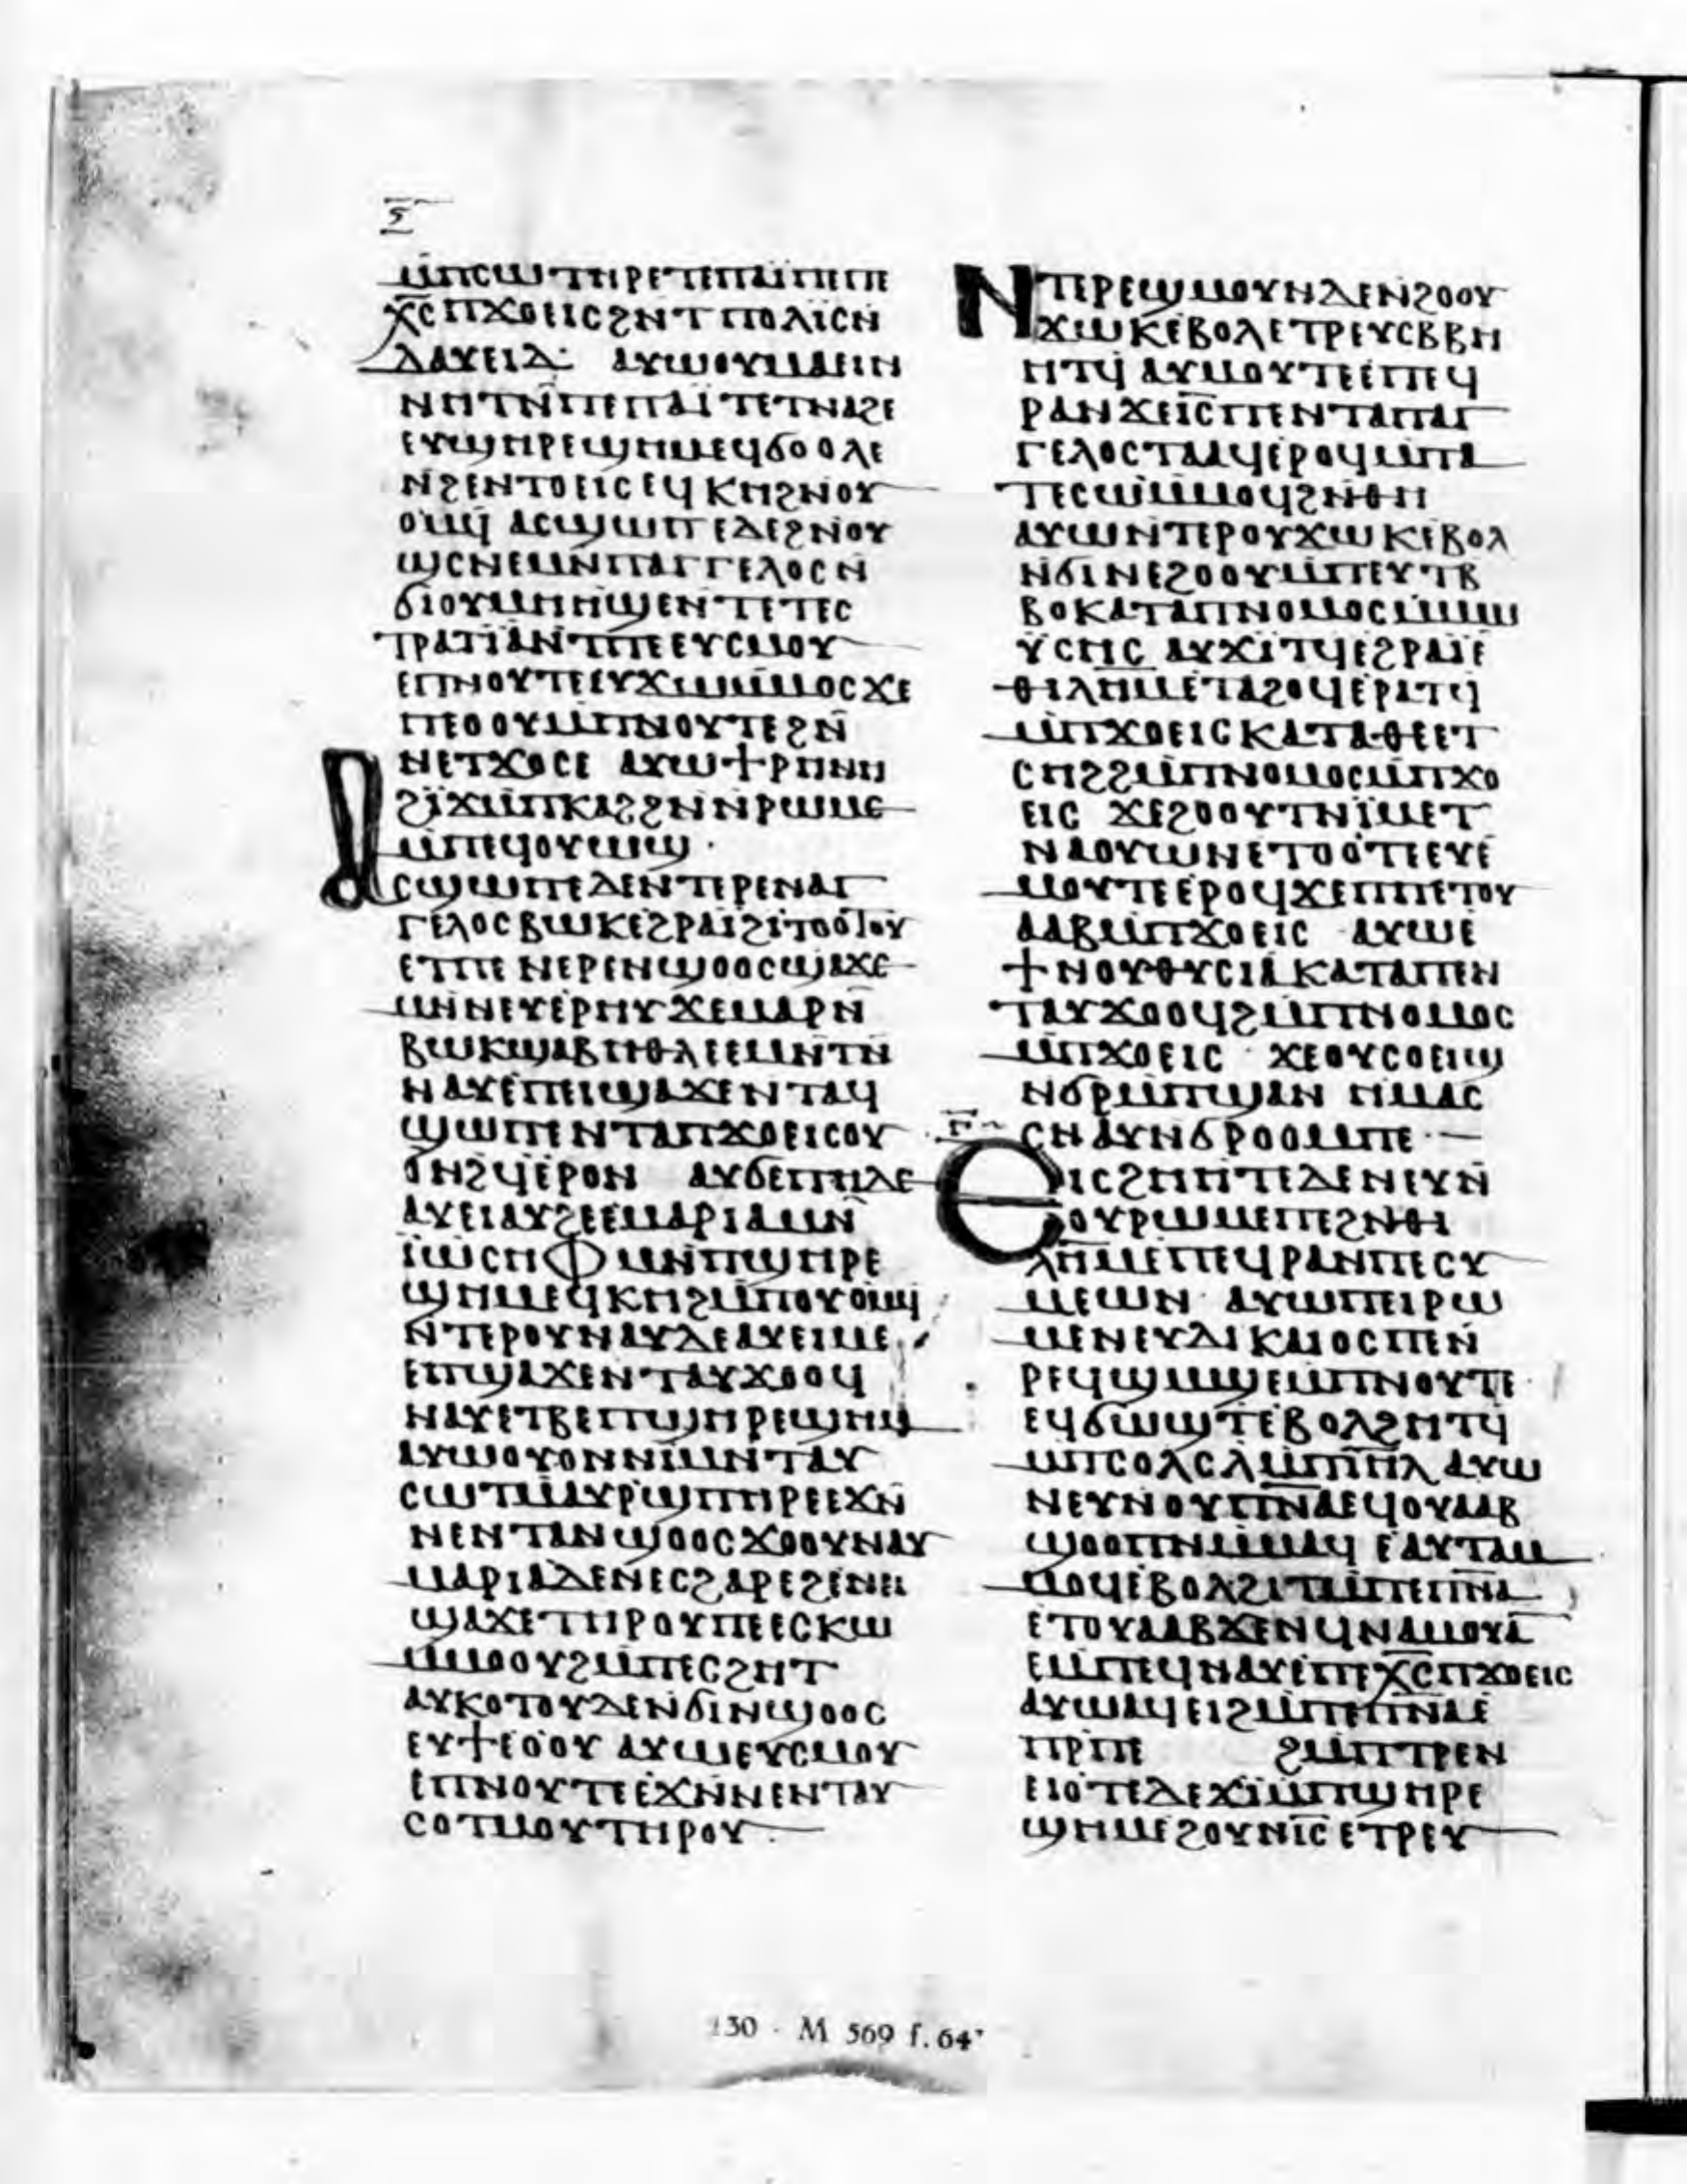 ⲋ
ⲙ̄ⲡⲥⲱⲧⲏⲣ ⲉⲧⲉⲡⲁⲓ̈ⲡⲉⲡⲉ
ⲭ̅ⲥ̅ ⲡϫⲟⲉⲓⲥ ϩⲛ̄ⲧⲡⲟⲗⲓⲥ ⲛ̄
ⲇⲁⲩⲉⲓⲇ· ⲁⲩⲱ ⲟⲩⲙⲁⲉⲓⲛ
ⲛⲏⲧⲛ̄ⲡⲉ ⲡⲁⲓ̈ ⲧⲉⲧⲛⲁϩⲉ
ⲉⲩϣⲏⲣⲉ ϣⲏⲙ ⲉϥϭⲟⲟⲗⲉ
ⲛ̄ϩⲉⲛⲧⲟⲉⲓⲥ ⲉϥⲕⲏ ϩⲛⲟⲩ
ⲟⲙϥ̄ ⲁⲥϣⲱⲡⲉ ⲇⲉ ϩⲛⲟⲩ
ϣⲥⲛⲉ ⲙⲛ̄ⲡⲁⲅⲅⲉⲗⲟⲥ ⲛ̄
ϭⲓⲟⲩⲙⲏⲏϣⲉ ⲛ̄ⲧⲉⲧⲉⲥ
ⲧⲣⲁⲧⲓⲁ ⲛ̄ⲧⲡⲉ ⲉⲩⲥⲙⲟⲩ
ⲉⲡⲛⲟⲩⲧⲉ ⲉⲩϫⲱⲙ̄ⲙⲟⲥ ϫⲉ
ⲡⲉⲟⲟⲩ ⲙ̄ⲡⲛⲟⲩⲧⲉ ϩⲛ̄
ⲛⲉⲧϫⲟⲥⲉ ⲁⲩⲱ ϯⲣⲏⲛⲏ
ϩⲓϫⲙ̄ⲡⲕⲁϩ ϩⲛ̄ⲛ̄ⲣⲱⲙⲉ
ⲙ̄ⲡⲉϥⲟⲩⲱϣ ·
ⲁⲥϣⲱⲡⲉ ⲇⲉ ⲛ̄ⲧⲉⲣⲉⲛⲁⲅ
ⲅⲉⲗⲟⲥ ⲃⲱⲕ ⲉϩⲣⲁⲓ̈ ϩⲓⲧⲟⲟⲧⲟⲩ
ⲉⲧⲡⲉ ⲛⲉⲣⲉⲛϣⲟⲟⲥ ϣⲁϫⲉ
ⲙⲛ̄ⲛⲉⲩⲉⲣⲏⲩ ϫⲉ ⲙⲁⲣⲛ̄
ⲃⲱⲕ ϣⲁⲃⲏⲑⲗⲉⲉⲙ ⲛ̄ⲧⲛ̄
ⲛⲁⲩ ⲉⲡⲉⲓϣⲁϫⲉ ⲛ̄ⲧⲁϥ
ϣⲱⲡⲉ ⲛ̄ⲧⲁⲡϫⲟⲉⲓⲥ ⲟⲩ
ⲟⲛϩϥ̄ ⲉⲣⲟⲛ ⲁⲩϭⲉⲡⲏ ⲇⲉ
ⲁⲩⲉⲓ ⲁⲩϩⲉ ⲉⲙⲁⲣⲓⲁ ⲙⲛ̄
ⲓ̈ⲱⲥⲏⲫ ⲙⲛ̄ⲡϣⲏⲣⲉ
ϣⲏⲙ ⲉϥⲕⲏ ϩⲙ̄ⲡⲟⲩⲟⲙϥ
ⲛ̄ⲧⲉⲣⲟⲩⲛⲁⲩ ⲇⲉ ⲁⲩⲉⲓⲙⲉ
ⲉⲡϣⲁϫⲉ ⲛ̄ⲧⲁⲩϫⲟⲟϥ
ⲛⲁⲩ ⲉⲧⲃⲉⲡϣⲏⲣⲉ ϣⲏⲙ
ⲁⲩⲱ ⲟⲩⲟⲛ ⲛⲓⲙ ⲛ̄ⲧⲁⲩ
ⲥⲱⲧⲙ̄ ⲁⲩⲣ̄ϣⲡⲏⲣⲉ ⲉϫⲛ̄
ⲛⲉⲛⲧⲁⲛϣⲟⲟⲥ ϫⲟⲟⲩ ⲛⲁⲩ
ⲙⲁⲣⲓⲁ ⲇⲉ ⲛⲉⲥϩⲁⲣⲉϩ ⲉⲛⲉⲓ
ϣⲁϫⲉ ⲧⲏⲣⲟⲩⲡⲉ ⲉⲥⲕⲱ
ⲙ̄ⲙⲟⲟⲩ ϩⲙ̄ⲡⲉⲥϩⲏⲧ
ⲁⲩⲕⲟⲧⲟⲩ ⲇⲉ ⲛ̄ϭⲓⲛϣⲟⲟⲥ
ⲉⲩϯⲉⲟⲟⲩ ⲁⲩⲱ ⲉⲩⲥⲙⲟⲩ
ⲉⲡⲛⲟⲩⲧⲉ ⲉϫⲛ̄ⲛⲉⲛⲧⲁⲩ
ⲥⲟⲧⲙⲟⲩ ⲧⲏⲣⲟⲩ ·
ⲛⲧⲉⲣⲉϣⲙⲟⲩⲛ ⲇⲉ ⲛ̄ϩⲟⲟⲩ
ϫⲱⲕ ⲉⲃⲟⲗ ⲉⲧⲣⲉⲩⲥⲃⲃⲏ
ⲏⲧϥ̄ ⲁⲩⲙⲟⲩⲧⲉ ⲉⲡⲉϥ
ⲣⲁⲛ ϫⲉ ⲓ̅ⲥ̅ ⲡⲉⲛⲧⲁⲡⲁⲅ
ⲅⲉⲗⲟⲥ ⲧⲁⲁϥ ⲉⲣⲟϥ ⲙ̄ⲡⲁ
ⲧⲉⲥⲱⲙ̄ⲙⲟϥ ϩⲛ̄ⲑⲏ
ⲁⲩⲱ ⲛ̄ⲧⲉⲣⲟⲩϫⲱⲕ ⲉⲃⲟⲗ
ⲛ̄ϭⲓⲛⲉϩⲟⲟⲩ ⲙ̄ⲡⲉⲩⲧⲃ̄
ⲃⲟ ⲕⲁⲧⲁⲡⲛⲟⲙⲟⲥ ⲙ̄ⲙⲱ
ⲩ̈ⲥⲏⲥ ⲁⲩϫⲓⲧϥ̄ ⲉϩⲣⲁⲓ̈ ⲉ
ⲑⲓⲗⲏⲙ ⲉⲧⲁϩⲟϥ ⲉⲣⲁⲧϥ̄
ⲙ̄ⲡϫⲟⲉⲓⲥ ⲕⲁⲧⲁ ⲑⲉ ⲉⲧ
ⲥⲏϩ ϩⲙ̄ⲡⲛⲟⲙⲟⲥ ⲙ̄ⲡϫⲟ
ⲉⲓⲥ ϫⲉ ϩⲟⲟⲩⲧ ⲛⲓⲙ ⲉⲧ
ⲛⲁⲟⲩⲱⲛ ⲉⲧⲟⲟⲧⲉ ⲉⲩⲉ
ⲙⲟⲩⲧⲉ ⲉⲣⲟϥ ϫⲉ ⲡⲡⲉⲧⲟⲩ
ⲁⲁⲃ ⲙ̄ⲡϫⲟⲉⲓⲥ ⲁⲩⲱ ⲉ
ϯ ⲛⲟⲩⲑⲩⲥⲓⲁ ⲕⲁⲧⲁ ⲡⲉⲛ
ⲧⲁⲩϫⲟⲟϥ ϩⲙ̄ⲡⲛⲟⲙⲟⲥ
ⲙ̄ⲡϫⲟⲉⲓⲥ · ϫⲉ ⲟⲩⲥⲟⲉⲓϣ
ⲛ̄ϭⲣⲙ̄ⲡϣⲁⲛ ⲏ ⲙⲁⲥ
ⲥⲛⲁⲩ ⲛ̄ϭⲣⲟⲟⲙⲡⲉ ·
ⲅ̅
ⲉⲓⲥϩⲏⲏⲧⲉ ⲇⲉ ⲛⲉⲩⲛ̄
ⲟⲩⲣⲱⲙⲉⲡⲉ ϩⲛ̄ⲑⲓ
ⲗⲏⲙ ⲉⲡⲉϥⲣⲁⲛⲡⲉ ⲥⲩ
ⲙⲉⲱⲛ· ⲁⲩⲱ ⲡⲉⲓⲣⲱ
ⲙⲉ ⲛⲉⲩⲇⲓⲕⲁⲓⲟⲥⲡⲉ ⲛ̄
ⲣⲉϥϣⲙ̄ϣⲉ ⲙ̄ⲡⲛⲟⲩⲧⲉ
ⲉϥϭⲱϣⲧ̄ ⲉⲃⲟⲗ ϩⲏⲧϥ̄
ⲙ̄ⲡⲥⲟⲗⲥⲗ̄ ⲙ̄ⲡⲓ̅ⲏ̅ⲗ̅ ⲁⲩⲱ
ⲛⲉⲩⲛⲟⲩⲡ̅ⲛ̅ⲁ̅ ⲉϥⲟⲩⲁⲁⲃ
ϣⲟⲟⲡ ⲛⲙ̄ⲙⲁϥ ⲉⲁⲩⲧⲁⲙ
ⲙⲟϥ ⲉⲃⲟⲗ ϩⲓⲧⲙ̄ⲡⲉⲡ̅ⲛ̅ⲁ̅
ⲉⲧⲟⲩⲁⲁⲃ ϫⲉ ⲛϥⲛⲁⲙⲟⲩ ⲁ
ⲉⲙⲡⲉϥⲛⲁⲩ ⲉⲡⲉⲭ̅ⲥ̅ ⲡϫⲟⲉⲓⲥ
ⲁⲩⲱ ⲁϥⲉⲓ ϩⲙ̄ⲡⲉⲡ̅ⲛ̅ⲁ̅ ⲉ
ⲡⲣ̄ⲡⲉ ϩⲙ̄ⲡⲧⲣⲉⲛ
ⲉⲓⲟⲧⲉ ⲇⲉ ϫⲓⲙ̄ⲡϣⲏⲣⲉ
ϣⲏⲙ ⲉϩⲟⲩⲛ ⲓ̅ⲥ̅ ⲉⲧⲣⲉⲩ
230 · M 569 f. 64ᵛ